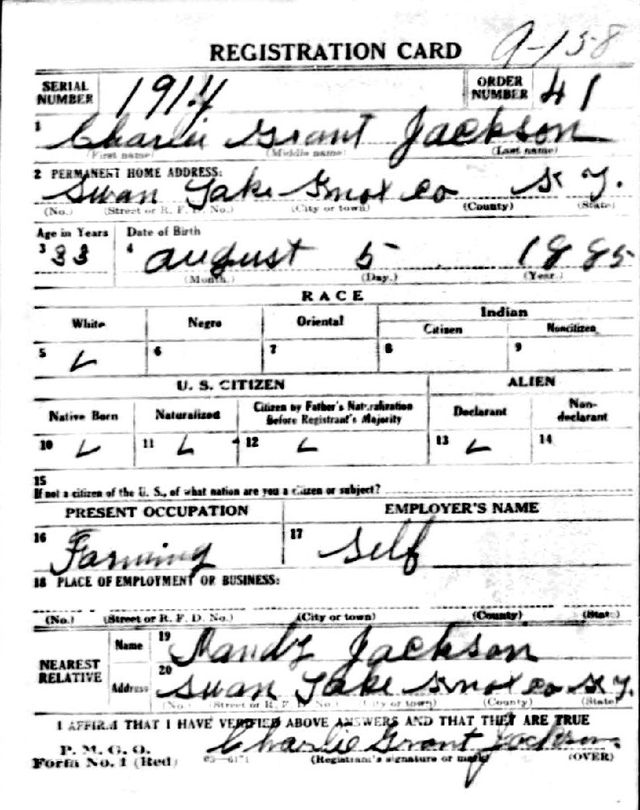 REGISTRATION CARD 9-158
SERIAL NUMBER 1914 ORDER NUMBER 41
1 Charlie Grant Jackson
(First name) (Middle name) (Last name)
2 PERMANENT HOME ADDRESS:
Swan Lake Knox Co Ky.
(No.) (Street or R. F. D. No.) (City or town) (County) (State)
Age in Years Date of Birth
3 33 4 August 5 1885
(Month.) (Day.) (Year.)
RACE
White Negro Oriental Indian
Citizen Noncitizen
5 6 7 8 9
U. S. CITIZEN ALIEN
Native Born Naturalized Citizen by Father's Naturalization Before Registrant's Majority Declarant Non-declarant
10 11 12 13 14
15
If not a citizen of the U. S., of what nation are you a citizen or subject?
PRESENT OCCUPATION EMPLOYER'S NAME
16 Farming 17 Self
18 PLACE OF EMPLOYMENT OR BUSINESS:
(No.) (Street or R. F. D. No.) (City or town) (County) (State)
NEAREST RELATIVE Name 19 Jackson
Address 20 Swan Lake Knox Co Ky.
(No.) (Street or R. F. D. No.) (City or town) (County) (State)
I AFFIRM THAT I HAVE VERIFIED ABOVE ANSWERS AND THAT THEY ARE TRUE
P. M. G. O.
Form No. 1 (Red) Charlie Grant Jackson
(Registrant's signature or mark) (OVER)